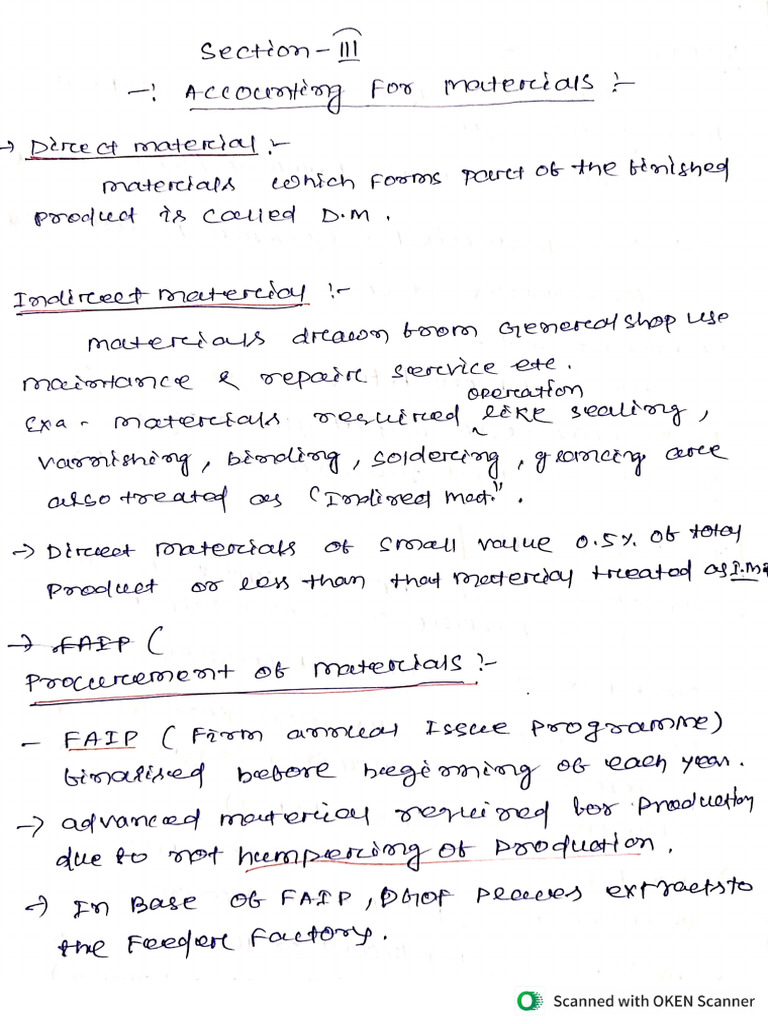 Section - III
-: Accounting For Materials :-
→ Direct material :-
Materials which forms part of the finished
product is called D.M.
Indirect material :-
Materials drawn from General shop use
maintance & repair service etc.
operation
Exa - Materials required like sealing,
varnishing, binding, soldering, are
also treated as "Indirect Mat."
→ Direct materials of small value 0.5% of total
product or less than that material treated as I.M.
→ FAIP (
Procurement of materials :-
- FAIP (Firm annual Issue Programme)
finalised before beginning of each year.
→ advanced material required for production
due to not humpering of production.
→ In Base of FAIP, DGOF places extracts to
the Feeder Factory.
Scanned with OKEN Scanner